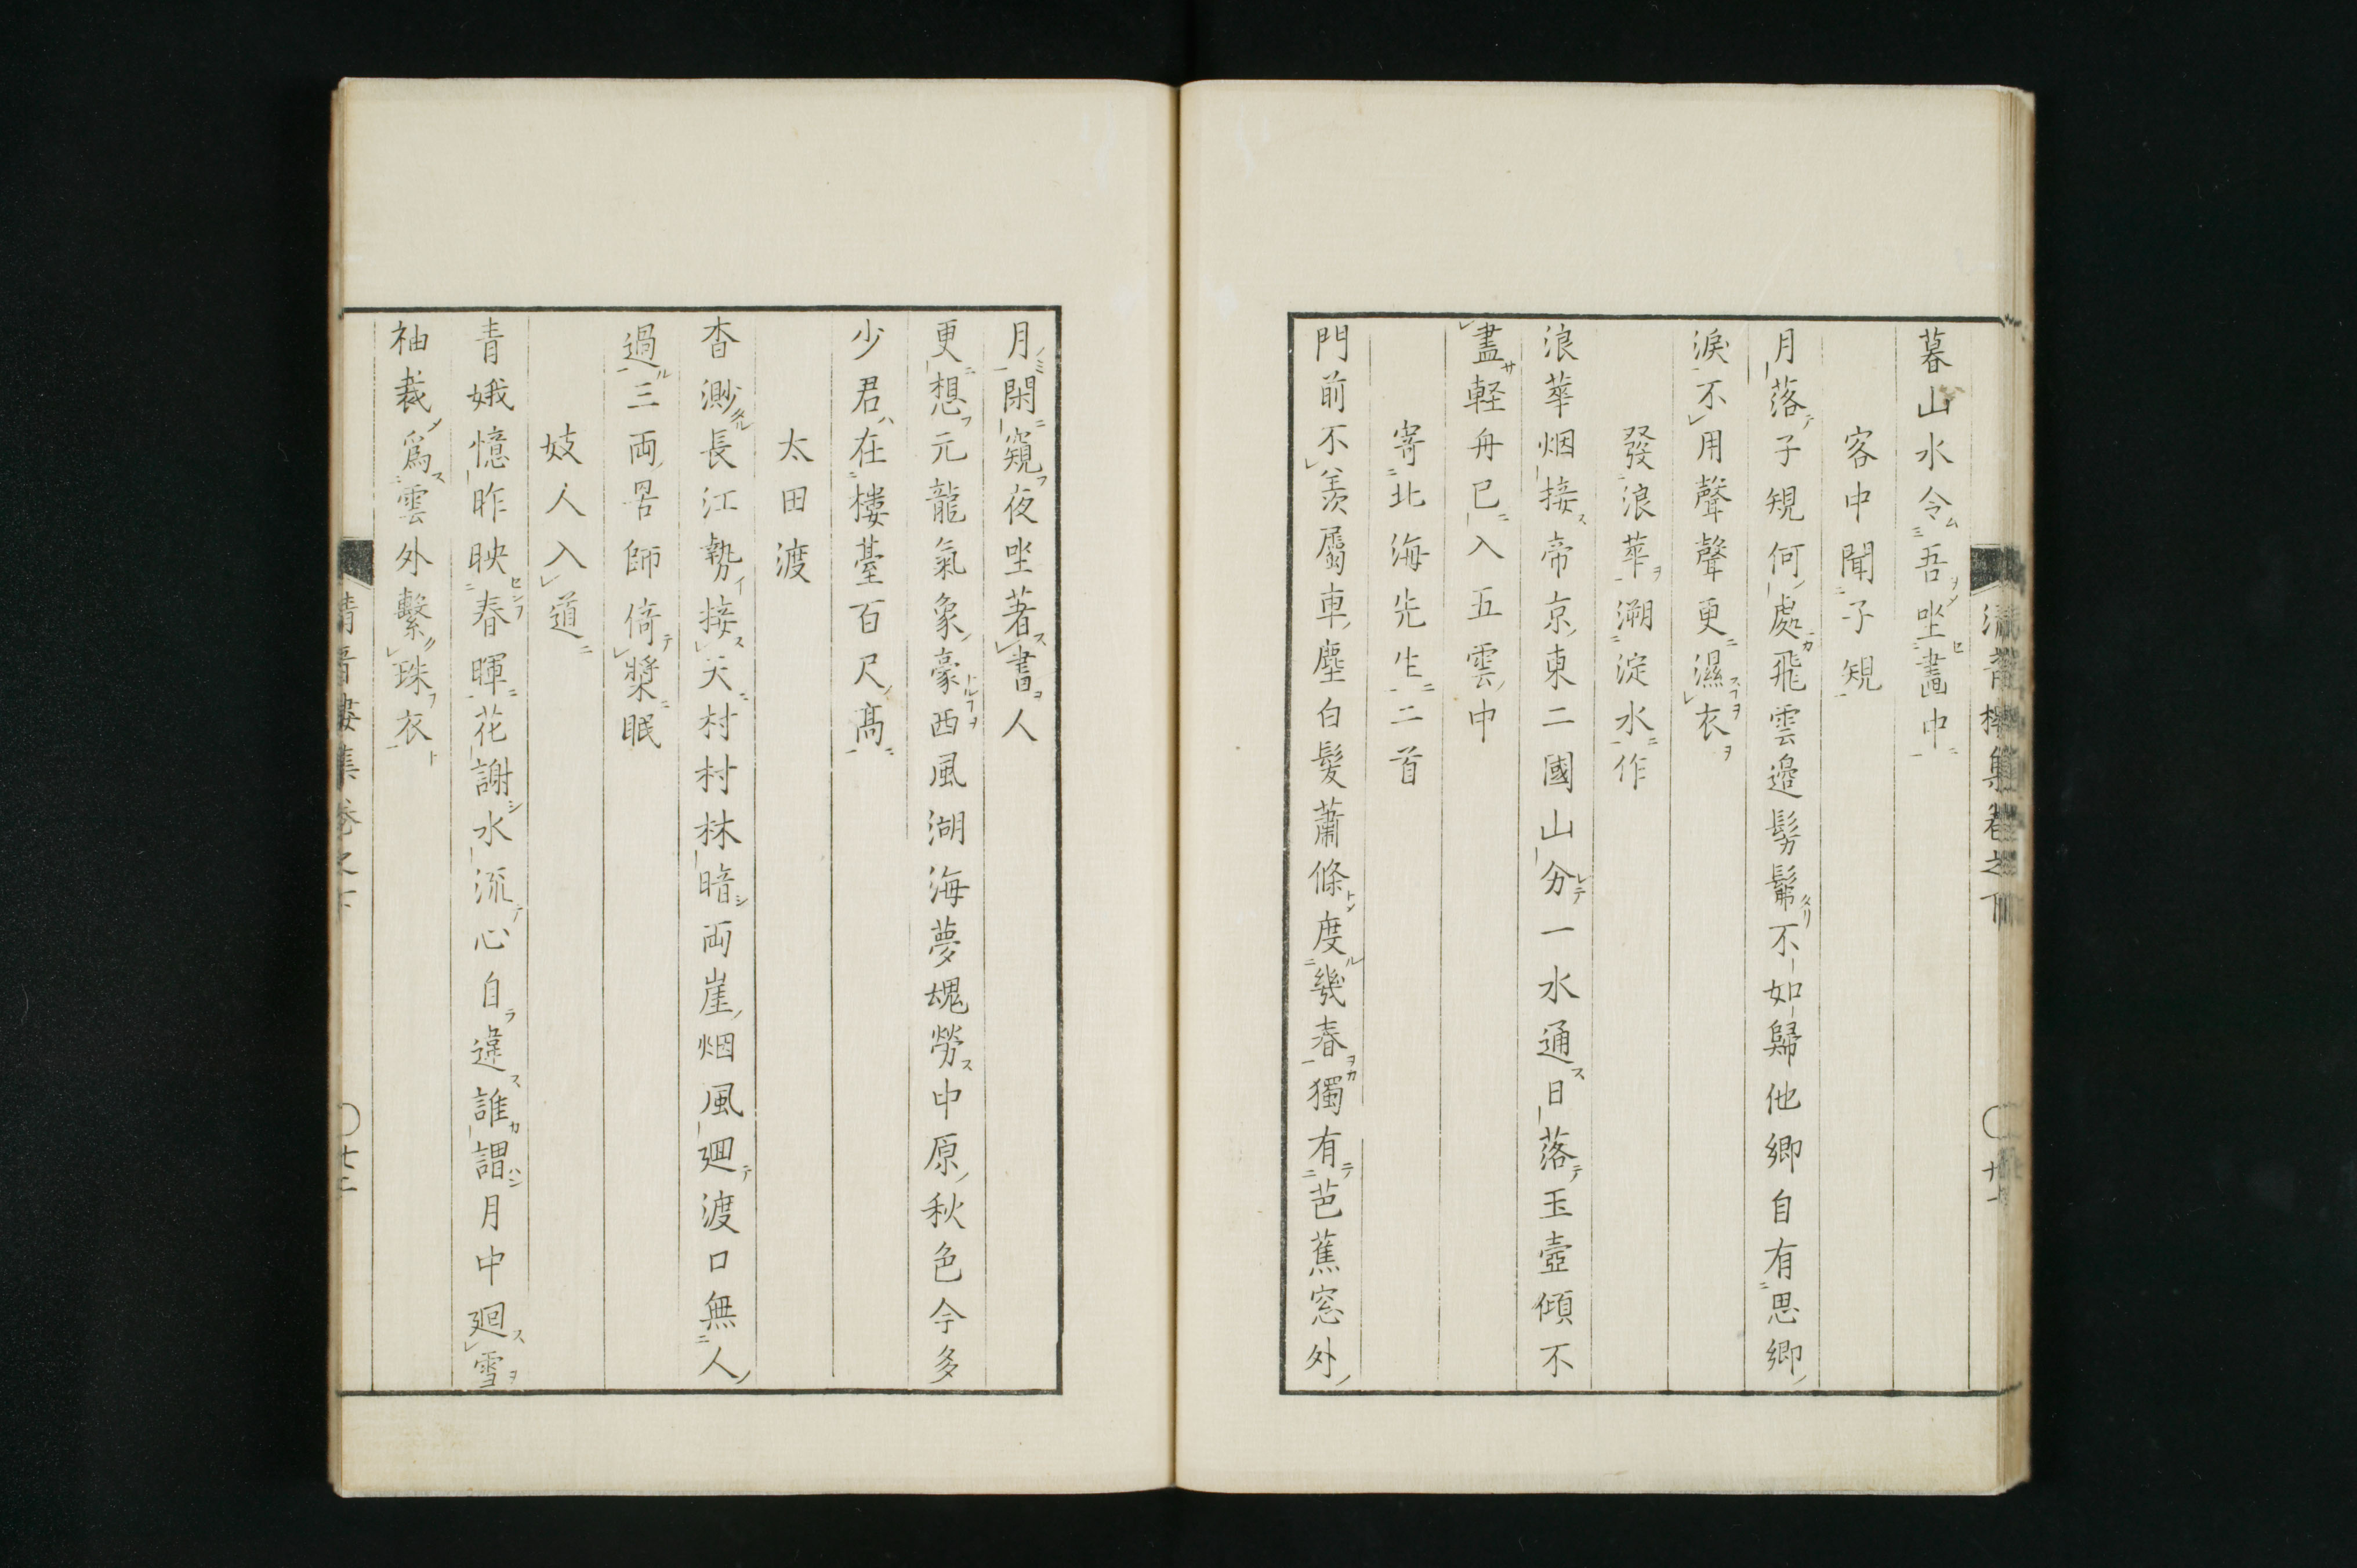 暮山水令吾坐畫中
客中聞子規
月落子規何處飛雲邊髣髴不如歸他鄉自有思鄉
淚不用聲聲更濕衣
發浪華溯淀水作
浪華烟接帝京東二國山分一水通日落玉壺傾不
盡軽舟已入五雲中
寄北海先生二首
門前不羨屬車塵白髮蕭條度幾春獨有芭蕉窓外
月閑窺夜坐著書人
更想元龍氣象豪西風湖海夢魂勞中原秋色今多
少君在樓臺百尺高
太田渡
杳渺長江勢接天村村林暗両崖烟風廻渡口無人
過三両罟師倚槳眠
妓人入道
青娥憶昨映春暉花謝水流心自違誰謂月中廻雪
袖裁爲雲外繫珠衣